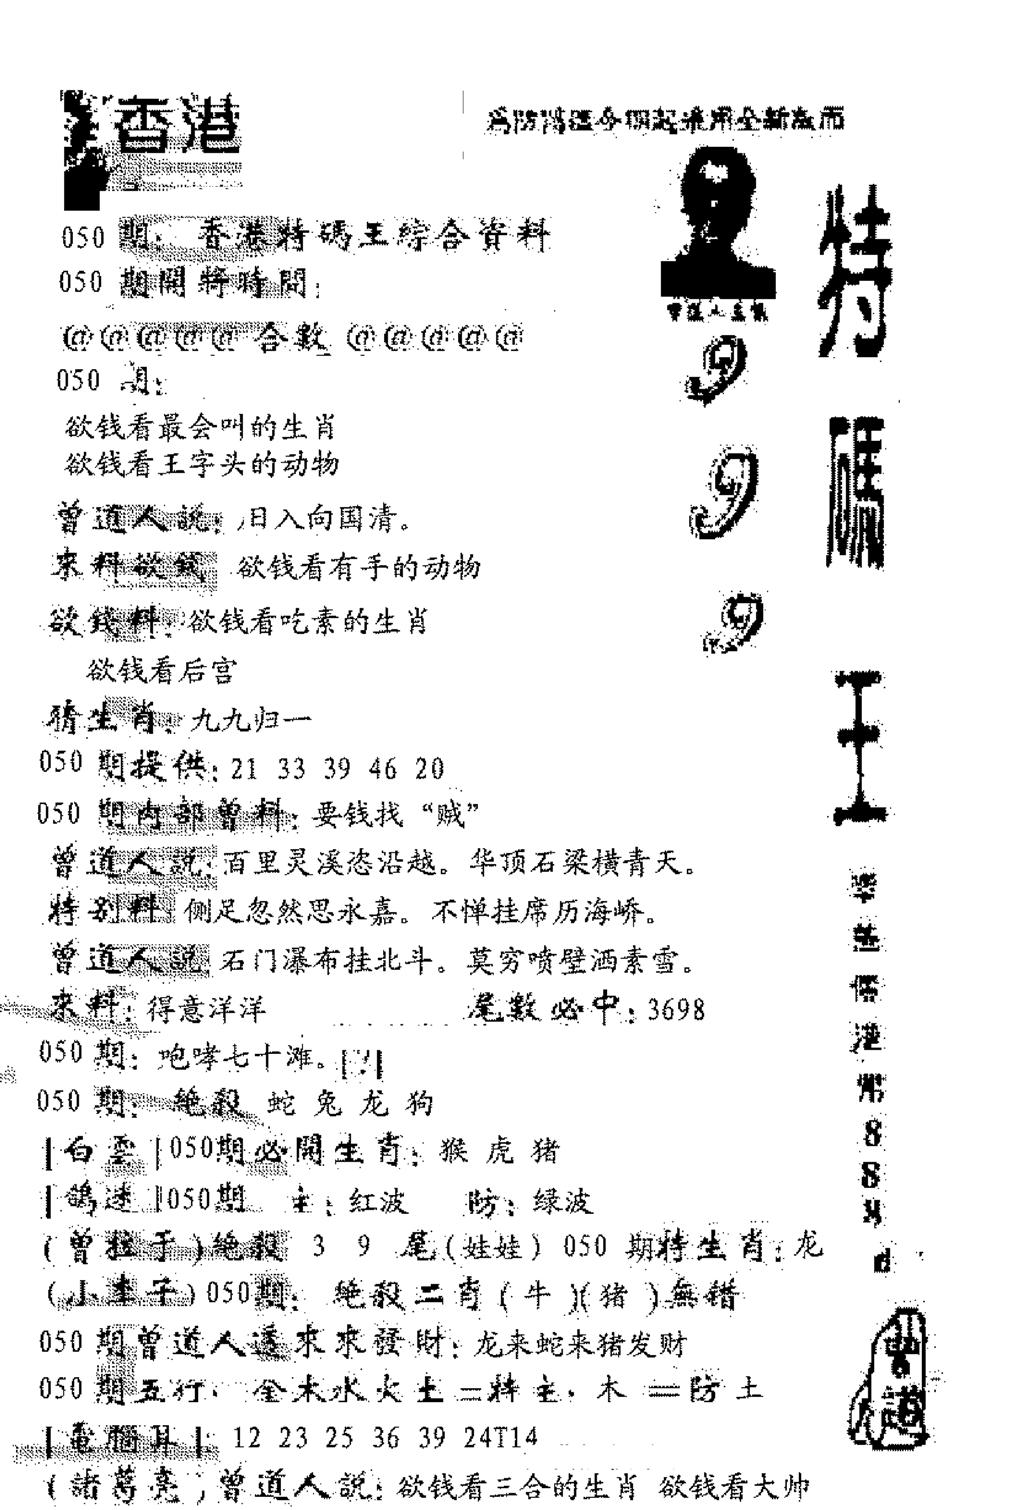 香港
為防混淆今期起採用全新版面
050 期： 香港特碼王綜合資料
050 期開獎時間：
@@@@@ 合數 @@@@@
050 期：
欲钱看最会叫的生肖
欲钱看王字头的动物
曾道人説：日入向国清。
來料欲錢 欲钱看有手的动物
欲錢料：欲钱看吃素的生肖
欲钱看后宫
猜生肖：九九归一
050 期提供：21 33 39 46 20
050 期内部曾料：要钱找“贼”
曾道人説：百里灵溪恣沿越。华顶石梁横青天。
特别料：侧足忽然思永嘉。不惮挂席历海峤。
曾道人説：石门瀑布挂北斗。莫穷喷壁洒素雪。
來料：得意洋洋 尾數必中：3698
050 期：咆哮七十滩。[?]
050 期：絶殺 蛇 兔 龙 狗
|白雲|050期必開生肖：猴 虎 猪
|鴿迷|050期 主：红波 防：绿波
(曾拉于)絶殺 3 9 尾(娃娃) 050 期特生肖：龙
(小李子)050期： 絶殺二肖(牛)(猪)無錯
050 期曾道人透來來發財：龙来蛇来猪发财
050 期五行：金木水火土=特主：木=防土
|電腦算|：12 23 25 36 39 24T14
(諸葛亮)曾道人説：欲钱看三合的生肖 欲钱看大帅
特碼王
9
9
9
港幣888
曾道